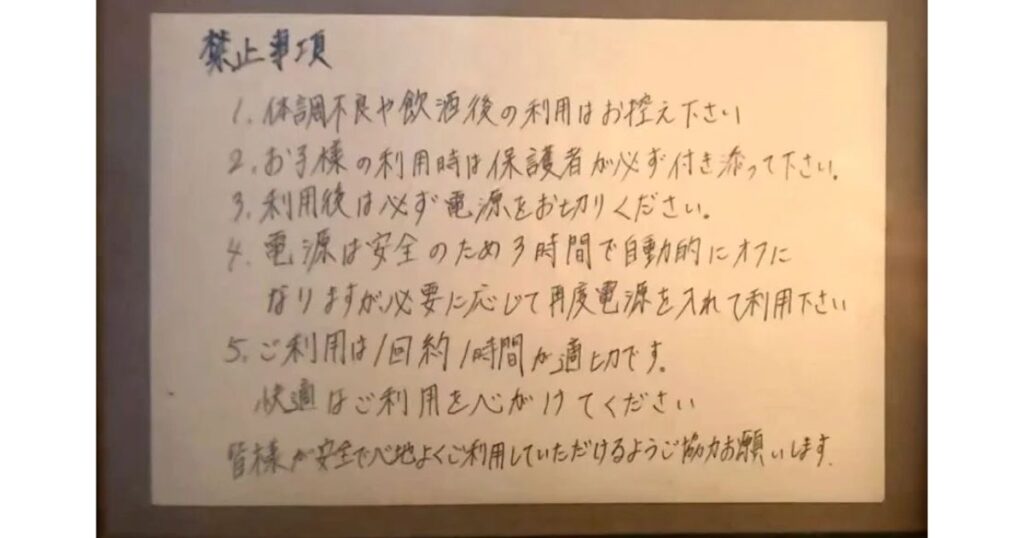 禁止事項
1. 体調不良や飲酒後の利用はお控え下さい
2. お子様の利用時は保護者が必ず付き添って下さい。
3. 利用後は必ず電源をお切りください。
4. 電源は安全のため3時間で自動的にオフに
なりますが、必要に応じて再度電源を入れて利用下さい
5. ご利用は1回約1時間が適切です。
快適はご利用を心がけてください
皆様が安全で心地よくご利用していただけるようご協力お願いします.